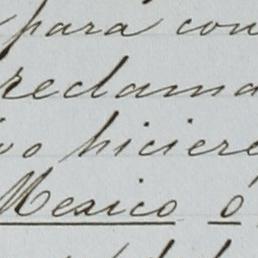 para con
reclama
vo hiciere
Mexico ó